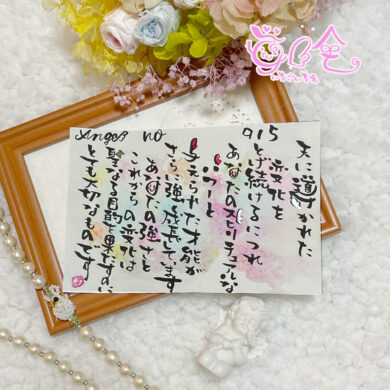 Angel no 915
天に導かれた
変化を
とげ続けるにつれ
あなたのスピリチュアルな
パワーと
与えられた才能が
さらに強く成長しています
あなたの強さと
これからの変化は
聖なる目的を果たすのに
とても大切なものです